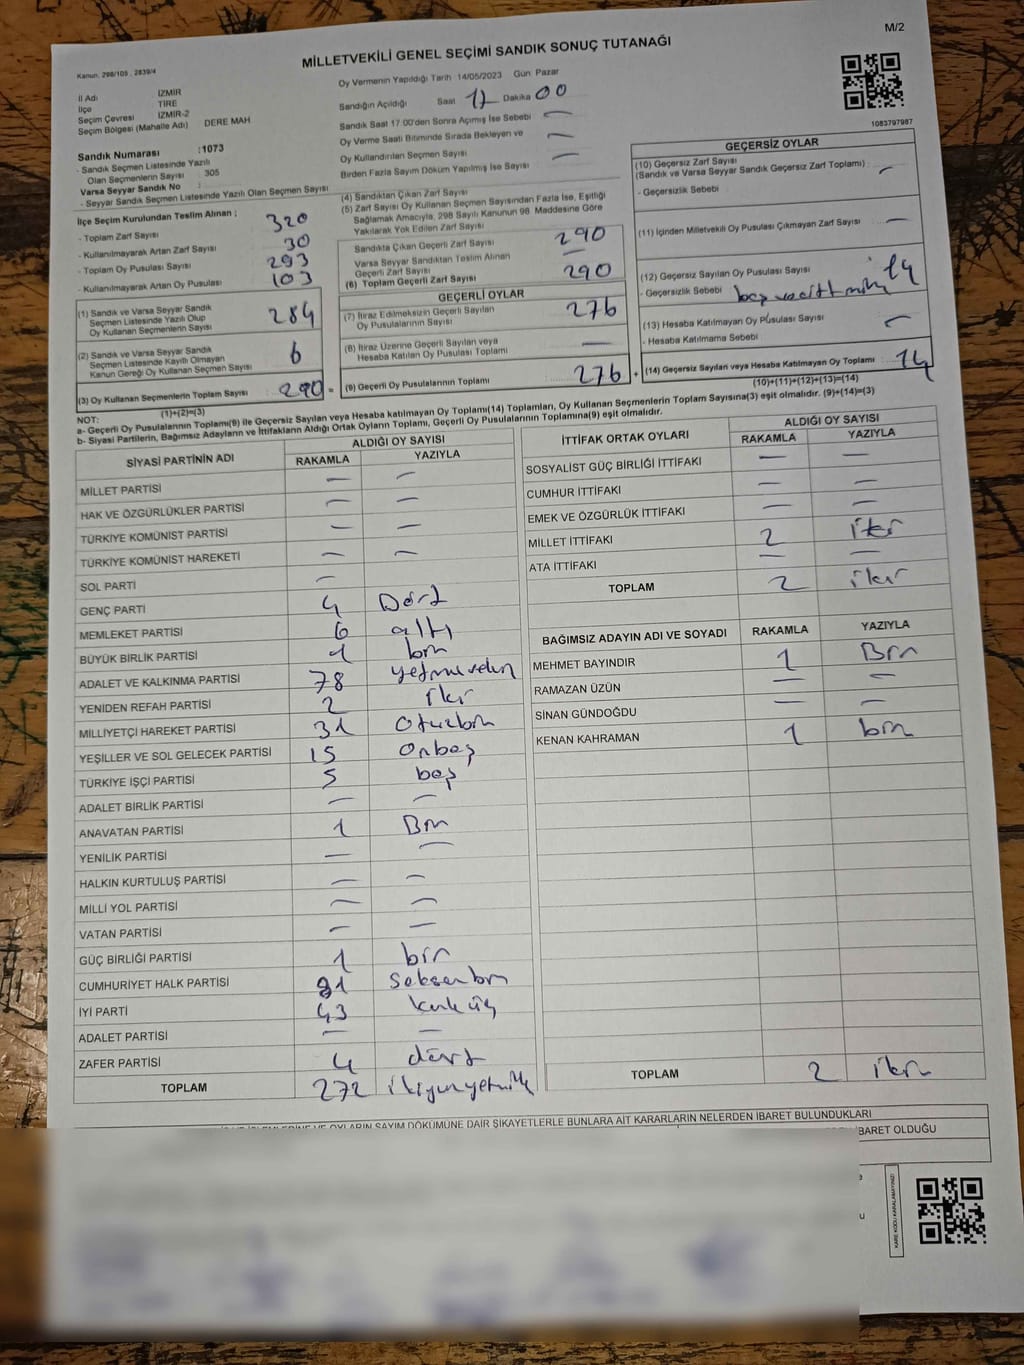 M/2
MİLLETVEKİLİ GENEL SEÇİMİ SANDIK SONUÇ TUTANAĞI
Kanun, 298/105 , 2839/4
İl Adı İZMİR
İlçe TİRE
Seçim Çevresi İZMİR-2
Seçim Bölgesi (Mahalle Adı) DERE MAH
Oy Vermenin Yapıldığı Tarih 14/05/2023 Gün Pazar
Sandığın Açıldığı Saat 17 Dakika 00
Sandık Saat 17:00'den Sonra Açımış İse Sebebi —
Oy Verme Saati Bitiminde Sırada Bekleyen ve
Oy Kullandırılan Seçmen Sayısı —
Birden Fazla Sayım Döküm Yapılmış İse Sayısı —
1083797987
Sandık Numarası :1073
- Sandık Seçmen Listesinde Yazılı
Olan Seçmenlerin Sayısı : 305
Varsa Seyyar Sandık No :
- Seyyar Sandık Seçmen Listesinde Yazılı Olan Seçmen Sayısı
İlçe Seçim Kurulundan Teslim Alınan ;
- Toplam Zarf Sayısı 320
- Kullanılmayarak Artan Zarf Sayısı 30
- Toplam Oy Pusulası Sayısı 293
- Kullanılmayarak Artan Oy Pusulası 103
(1) Sandık ve Varsa Seyyar Sandık
Seçmen Listesinde Yazılı Olup
Oy Kullanan Seçmenlerin Sayısı 284
(2) Sandık ve Varsa Seyyar Sandık
Seçmen Listesinde Kayıtlı Olmayan
Kanun Gereği Oy Kullanan Seçmen Sayısı 6
(3) Oy Kullanan Seçmenlerin Toplam Sayısı 290 =
(1)+(2)=(3)
(4) Sandıktan Çıkan Zarf Sayısı
(5) Zarf Sayısı Oy Kullanan Seçmen Sayısından Fazla İse, Eşitliği
Sağlamak Amacıyla, 298 Sayılı Kanunun 98. Maddesine Göre
Yakılarak Yok Edilen Zarf Sayısı
Sandıkta Çıkan Geçerli Zarf Sayısı 290
Varsa Seyyar Sandıktan Teslim Alınan
Geçerli Zarf Sayısı —
(6) Toplam Geçerli Zarf Sayısı 290
GEÇERLİ OYLAR
(7) İtiraz Edilmeksizin Geçerli Sayılan
Oy Pusulalarının Sayısı 276
(8) İtiraz Üzerine Geçerli Sayılan veya
Hesaba Katılan Oy Pusulası Toplamı —
(9) Geçerli Oy Pusulalarının Toplamı 276 +
GEÇERSİZ OYLAR
(10) Geçersiz Zarf Sayısı
(Sandık ve Varsa Seyyar Sandık Geçersiz Zarf Toplamı) —
- Geçersizlik Sebebi
(11) İçinden Milletvekili Oy Pusulası Çıkmayan Zarf Sayısı —
(12) Geçersiz Sayılan Oy Pusulası Sayısı 14
- Geçersizlik Sebebi
(13) Hesaba Katılmayan Oy Pusula Sayısı —
- Hesaba Katılmama Sebebi
(14) Geçersiz Sayılan veya Hesaba Katılmayan Oy Toplamı 14
(10)+(11)+(12)+(13)=(14)
NOT:
a- Geçerli Oy Pusulalarının Toplamı(9) ile Geçersiz Sayılan veya Hesaba katılmayan Oy Toplamı(14) Toplamları, Oy Kullanan Seçmenlerin Toplam Sayısına(3) eşit olmalıdır. (9)+(14)=(3)
b- Siyasi Partilerin, Bağımsız Adayların ve İttifakların Aldığı Ortak Oyların Toplamı, Geçerli Oy Pusulalarının Toplamına(9) eşit olmalıdır.
SİYASİ PARTİNİN ADI ALDIĞI OY SAYISI
RAKAMLA YAZIYLA
MİLLET PARTİSİ — —
HAK VE ÖZGÜRLÜKLER PARTİSİ — —
TÜRKİYE KOMÜNİST PARTİSİ — —
TÜRKİYE KOMÜNİST HAREKETİ — —
SOL PARTİ —
GENÇ PARTİ 4 Dört
MEMLEKET PARTİSİ 6 altı
BÜYÜK BİRLİK PARTİSİ 1 bir
ADALET VE KALKINMA PARTİSİ 78
YENİDEN REFAH PARTİSİ 2 iki
MİLLİYETÇİ HAREKET PARTİSİ 31 Otuzbir
YEŞİLLER VE SOL GELECEK PARTİSİ 15 Onbeş
TÜRKİYE İŞÇİ PARTİSİ 5 beş
ADALET BİRLİK PARTİSİ — —
ANAVATAN PARTİSİ 1 Bir
YENİLİK PARTİSİ — —
HALKIN KURTULUŞ PARTİSİ — —
MİLLİ YOL PARTİSİ — —
VATAN PARTİSİ — —
GÜÇ BİRLİĞİ PARTİSİ 1 bir
CUMHURİYET HALK PARTİSİ 81 Seksenbir
İYİ PARTİ 43 kırküç
ADALET PARTİSİ — —
ZAFER PARTİSİ 4 dört
TOPLAM 272 ikiyüzyetmiş
İTTİFAK ORTAK OYLARI ALDIĞI OY SAYISI
RAKAMLA YAZIYLA
SOSYALİST GÜÇ BİRLİĞİ İTTİFAKI — —
CUMHUR İTTİFAKI — —
EMEK VE ÖZGÜRLÜK İTTİFAKI — —
MİLLET İTTİFAKI 2 iki
ATA İTTİFAKI — —
TOPLAM 2 iki
BAĞIMSIZ ADAYIN ADI VE SOYADI RAKAMLA YAZIYLA
MEHMET BAYINDIR 1 Bir
RAMAZAN ÜZÜN — —
SİNAN GÜNDOĞDU — —
KENAN KAHRAMAN 1 bir
TOPLAM 2 iki
OYLARIN SAYIM DÖKÜMÜNE DAİR ŞİKAYETLERLE BUNLARA AİT KARARLARIN NELERDEN İBARET BULUNDUKLARI
İBARET OLDUĞU
KARE KODU KARALAMAYINIZ!